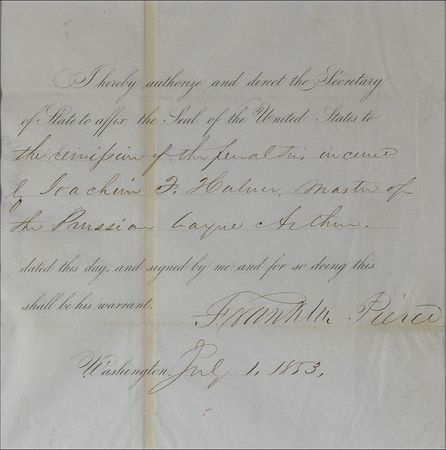 I hereby authorize and direct the Secretary
of State to affix the Seal of the United States to
the remission of the penalties incurred
by Joachim F. Halmer, Master of
the Prussian barque Arthur.
dated this day, and signed by me and for so doing this
shall be his warrant.
Franklin Pierce
Washington, July 1, 1853.